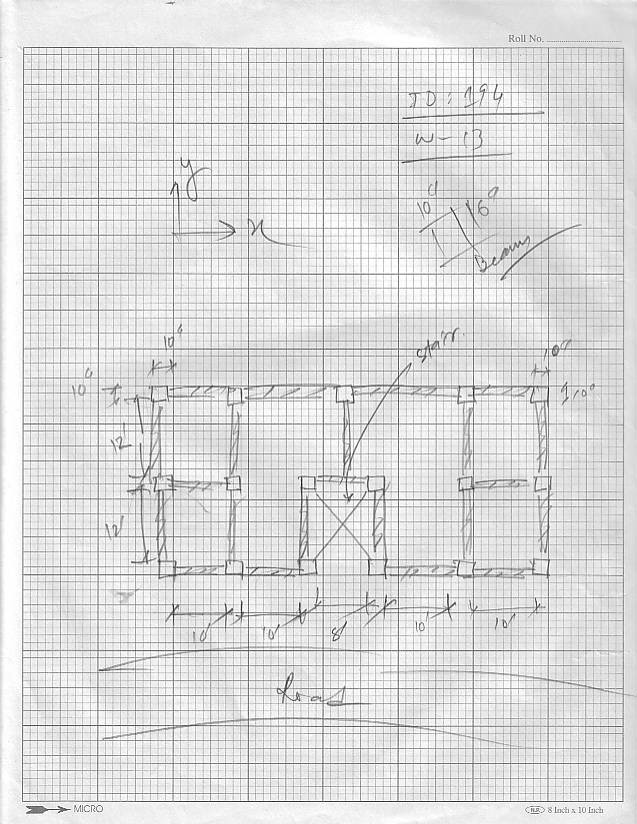 Roll No.
ID: 194
W-13
y
x
10" 6"
Beams
stair.
10"
10"
10"
10"
12'
12'
10' 10' 8' 10' 10'
Road
MICRO
8 Inch x 10 Inch